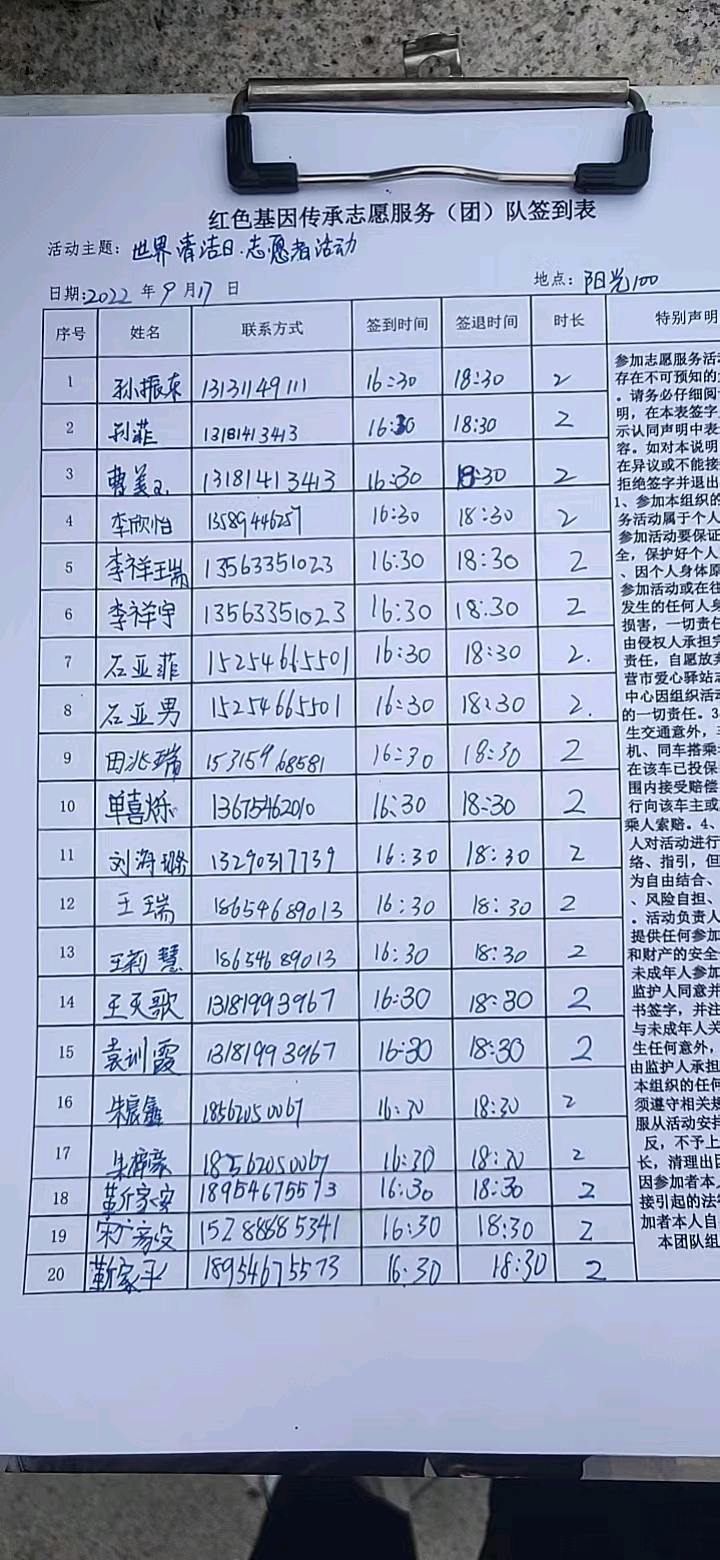 红色基因传承志愿服务（团）队签到表
活动主题：世界清洁日.志愿者活动
日期:2022 年 9 月 17 日 地点：阳光100
序号 姓名 联系方式 签到时间 签退时间 时长 特别声明
1 孙振东 13131149111 16:30 18:30 2
2 孙菲 13181413413 16:30 18:30 2
3 曹美 13181413413 16:30 18:30 2
4 李欣怡 13589446257 16:30 18:30 2
5 李祥瑞 13563351023 16:30 18:30 2
6 李祥宇 13563351023 16:30 18:30 2
7 石亚菲 15254665501 16:30 18:30 2.
8 石亚男 15254665501 16:30 18:30 2.
9 田兆瑞 15315968581 16:30 18:30 2
10 单喜烁 13675462010 16:30 18:30 2
11 刘海璐 13290317739 16:30 18:30 2
12 王瑞 18654689013 16:30 18:30 2
13 王莉慧 18654689013 16:30 18:30 2
14 王天歌 13181993967 16:30 18:30 2
15 袁训霞 13181993967 16:30 18:30 2
16 朱宸鑫 18562050067 16:30 18:30 2
17 朱梓豪 18562050067 16:30 18:30 2
18 靳家安 18954675573 16:30 18:30 2
19 宋 15288885341 16:30 18:30 2
20 靳家平 18954675573 16:30 18:30 2
参加志愿服务活
存在不可预知的
。请务必仔细阅
明，在本表签字
示认同声明中表
容。如对本说明
在异议或不能接
拒绝签字并退出
1、参加本组织的
务活动属于个人
参加活动要保证
全，保护好个人
、因个人身体原
参加活动或在往
发生的任何人身
损害，一切责任
由侵权人承担完
责任，自愿放弃
营市爱心驿站志
中心因组织活动
的一切责任。3
生交通意外，
机、同车搭乘
在该车已投保
围内接受赔偿
行向该车主或
乘人索赔。4、
人对活动进行
络、指引，但
为自由结合、
、风险自担、
。活动负责人
提供任何参加
和财产的安全
未成年人参加
监护人同意并
书签字，并注
与未成年人关
生任何意外，
由监护人承担
本组织的任何
须遵守相关规
服从活动安排
反，不予上
长，清理出团
因参加者本人
接引起的法
加者本人自
本团队组